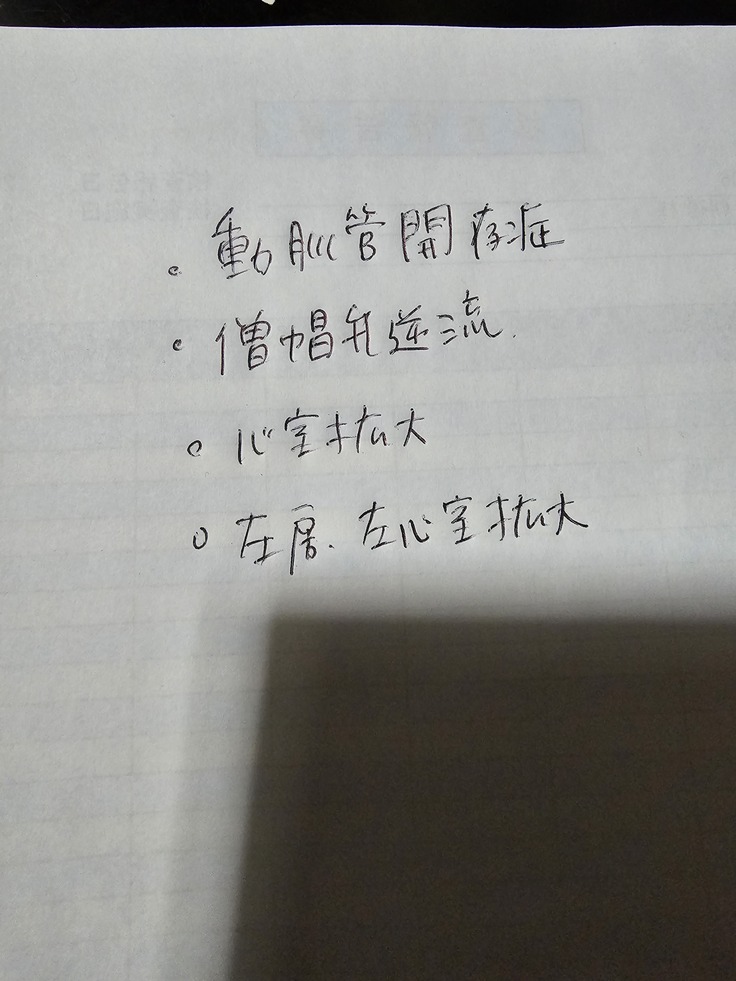 。動脈管開存症
。僧帽弁逆流
。心室拡大
。左房、左心室拡大